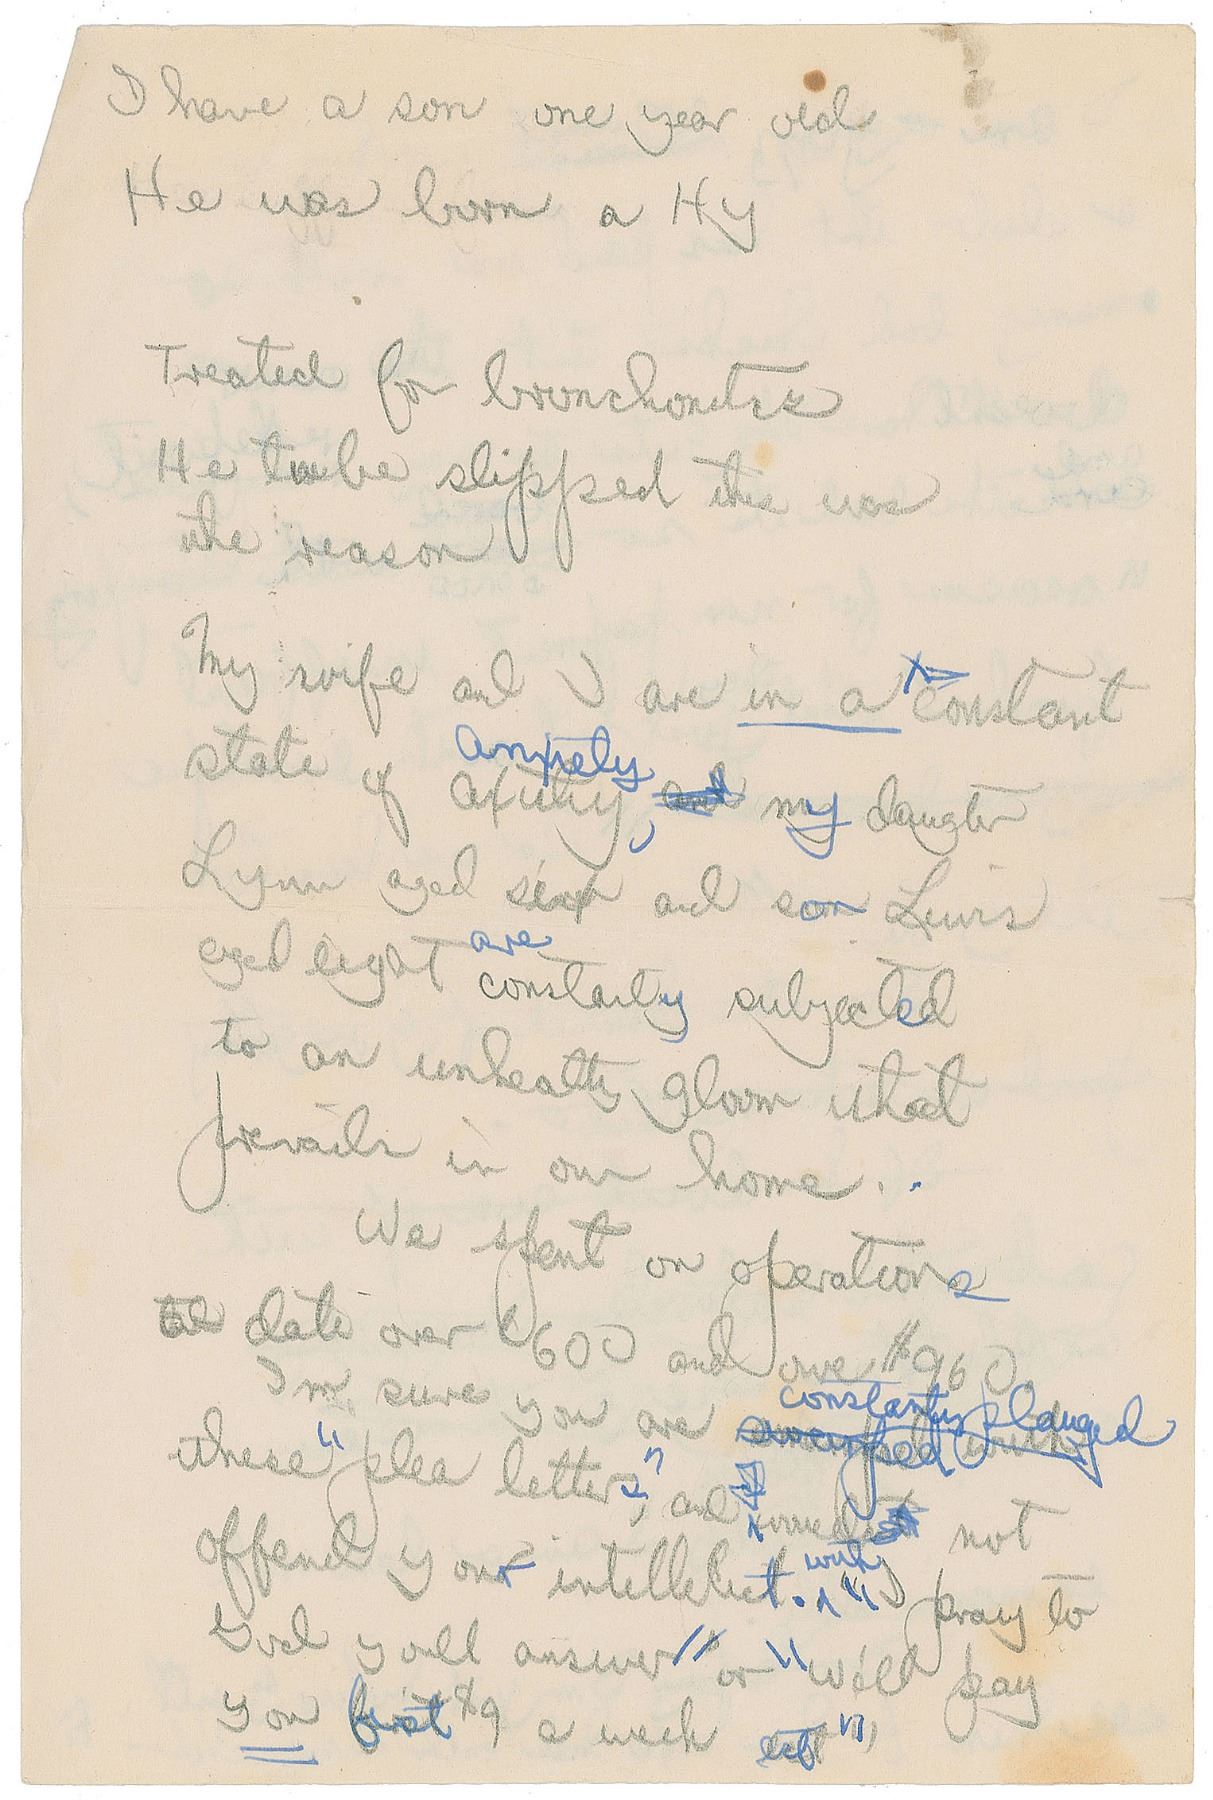 I have a son one year old
He was born a Hy
Treated for bronchontiz
He tube slipped this was
the reason
My wife and I are in a constant
anxiety
state of axitity, and my daugter
Lynn aged six and son Lewis
are
aged eight constanty subjected
to an unhealthy gloom that
prevails in our home..
We spent on operations
to date over $600 and owe $960.
constantly plauged
I'm sure you are swamped with
these "plea letters", and I would not
with
offend your intellect. "I pray to
God youll answer" or "will pay
you first $9 a week ect",